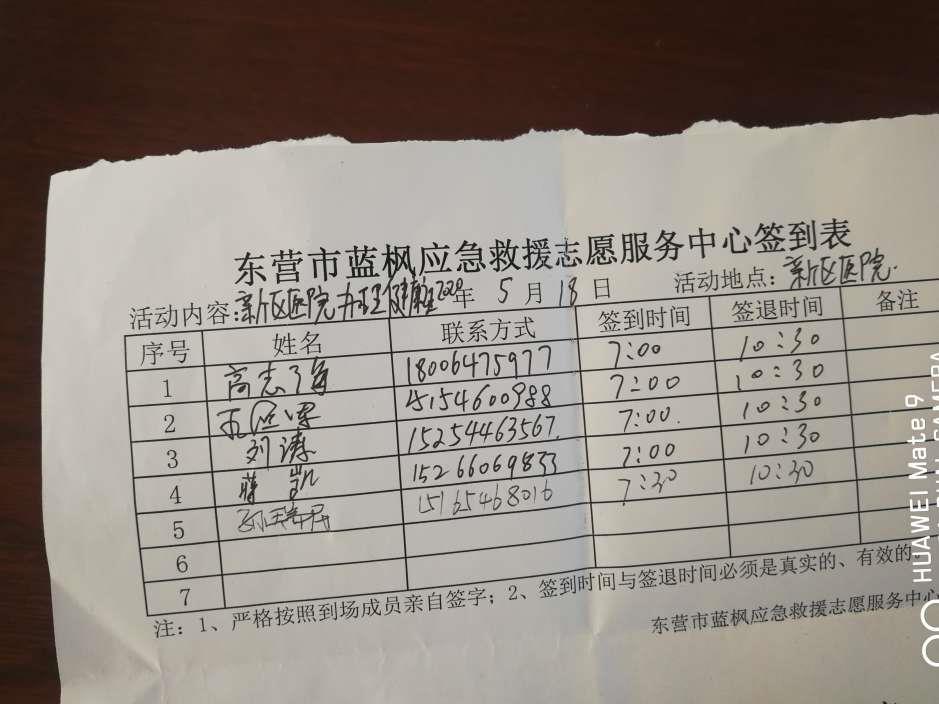 东营市蓝枫应急救援志愿服务中心签到表
活动内容:新区医院办理健康证 2020年 5月18日 活动地点:新区医院.
序号 姓名 联系方式 签到时间 签退时间 备注
1 高志海 18006475977 7:00 10:30
2 15154600988 7:00 10:30
3 刘涛 15254463567. 7:00. 10:30
4 蒋凯 15266069833 7:00 10:30
5 孙瑞民 15165468016 7:30 10:30
6
7
注:1、严格按照到场成员亲自签字;2、签到时间与签退时间必须是真实的、有效的。
东营市蓝枫应急救援志愿服务中心
HUAWEI Mate 9
CAMERA